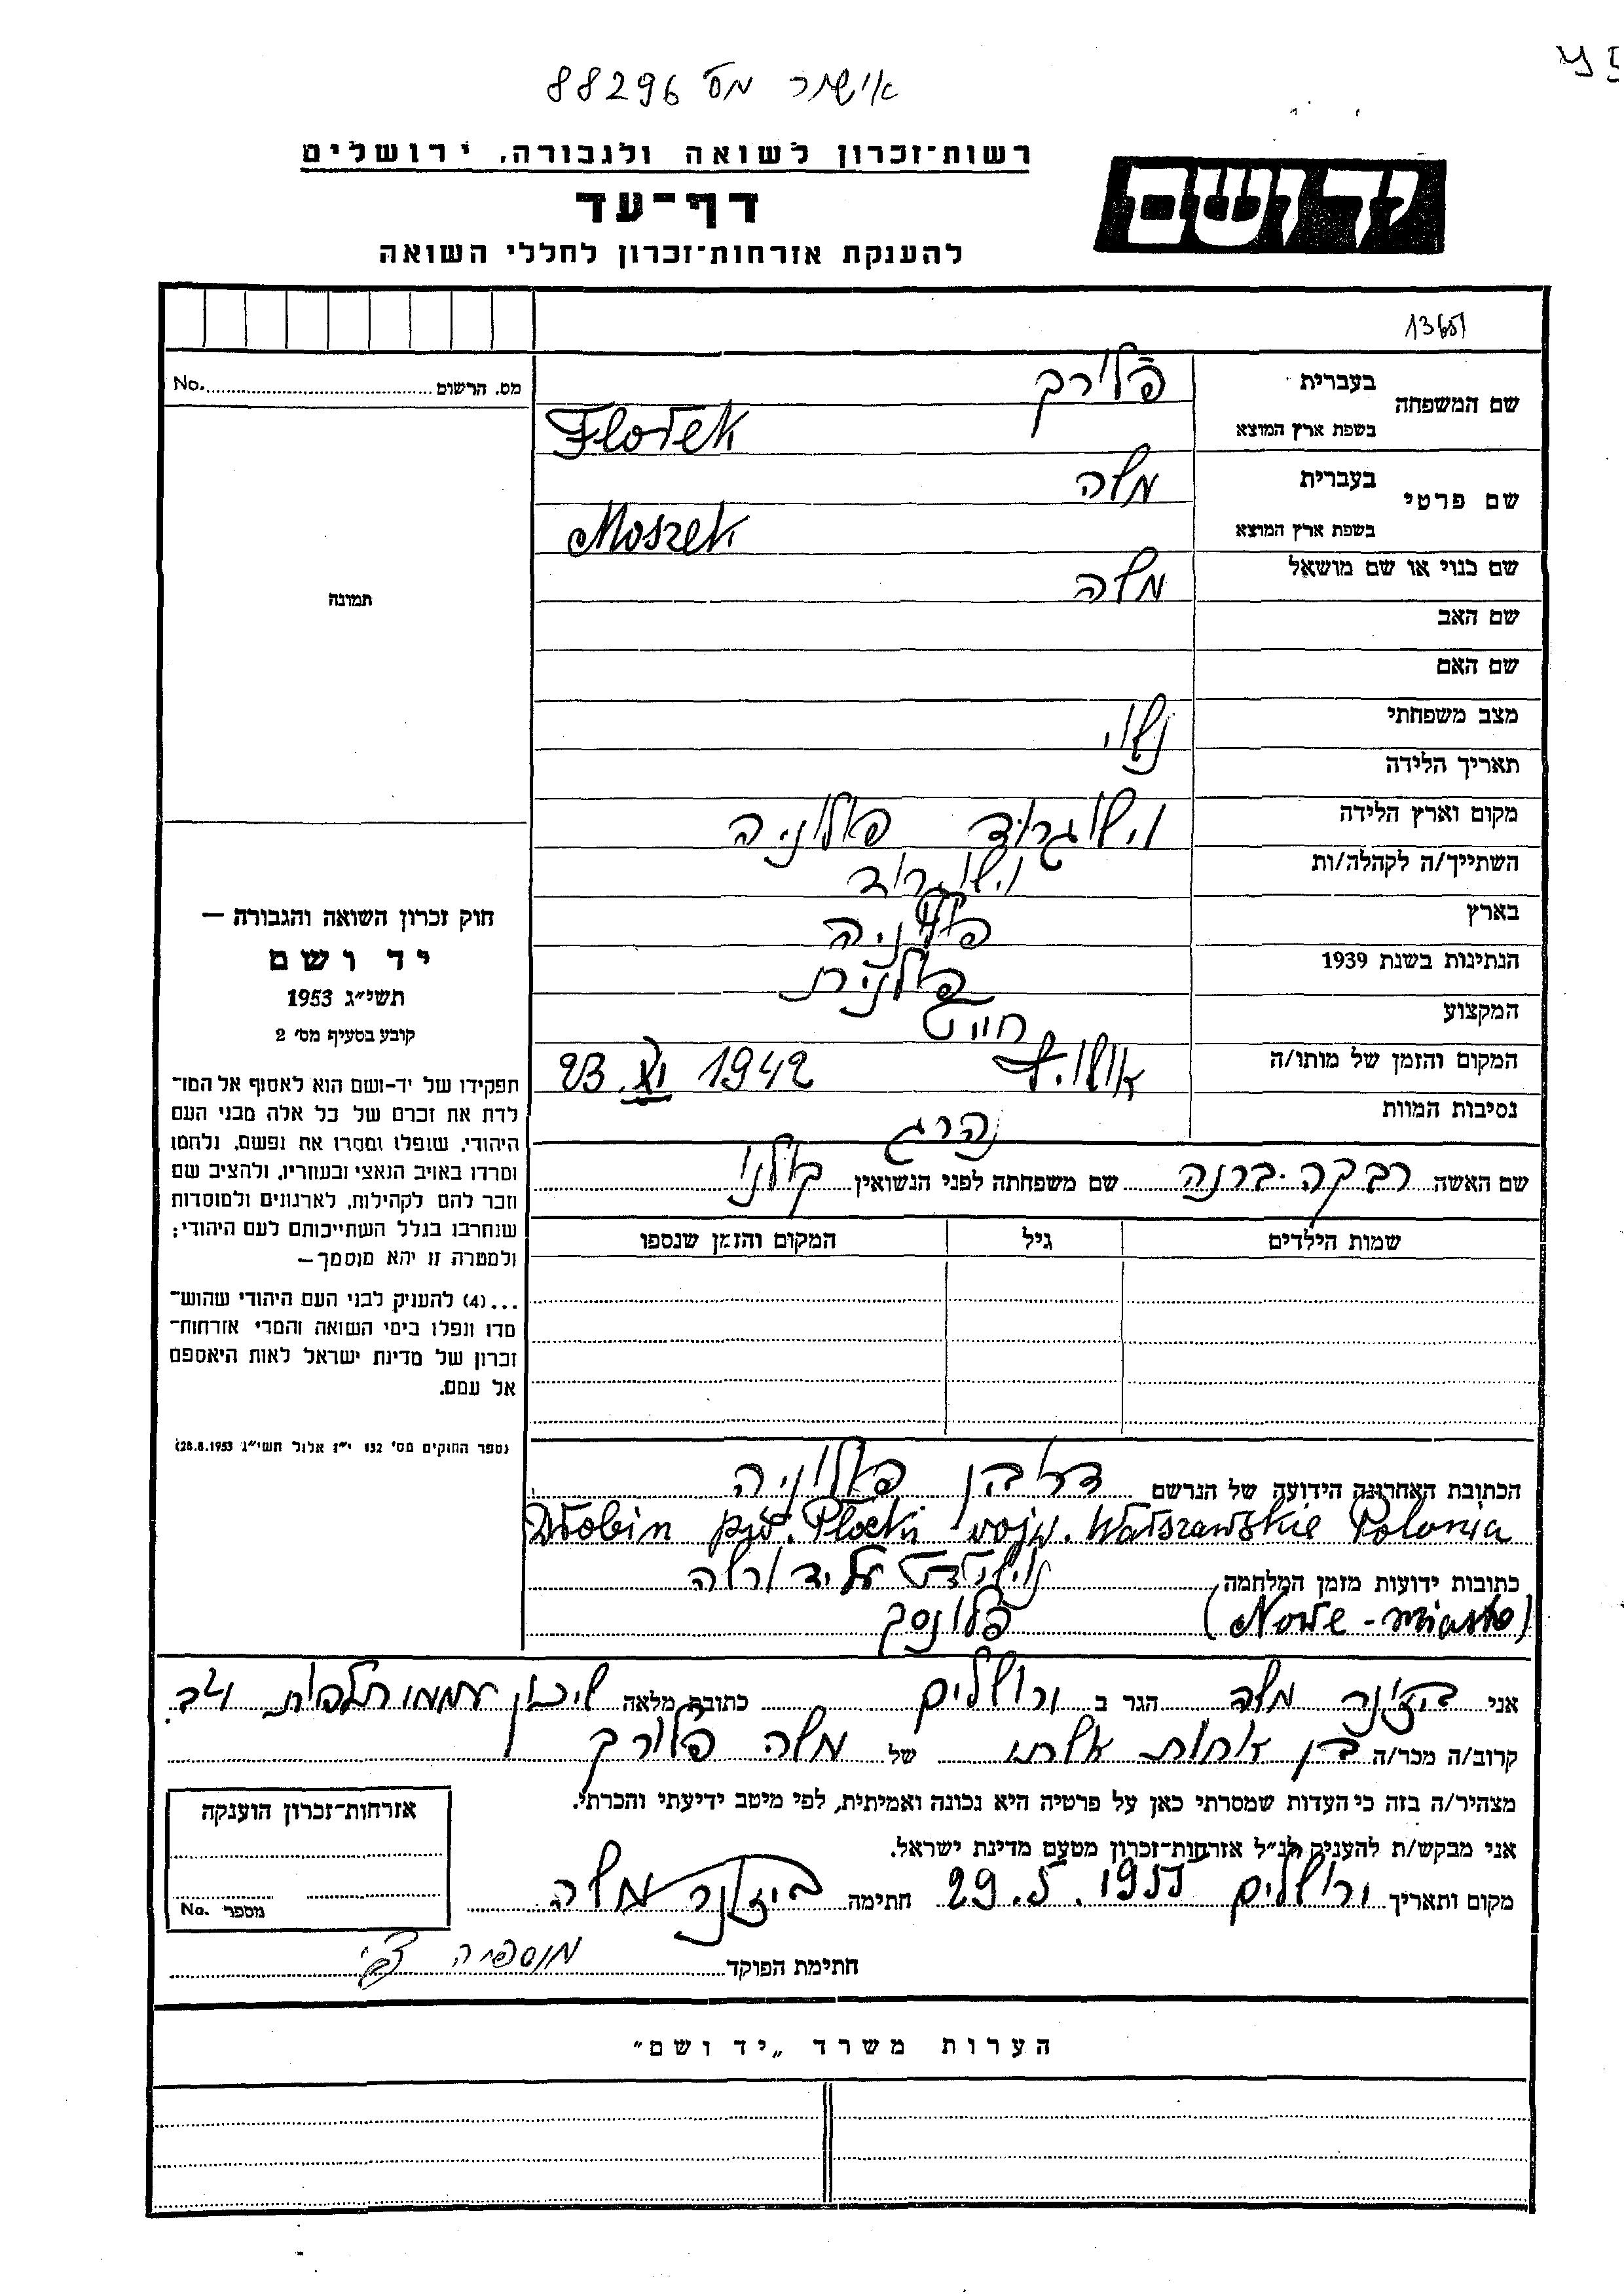 אישור מס 88296
רשות־זכרון לשואה ולגבורה, ירושלים
דף־עד
להענקת אזרחות־זכרון לחללי השואה
יד ושם
מס. הרשום No.
תמונה
שם המשפחה
בעברית פלורק
בשפת ארץ המוצא Florek
שם פרטי
בעברית משה
בשפת ארץ המוצא Moszek
שם כנוי או שם מושאל משה
שם האב
שם האם
מצב משפחתי נשוי
תאריך הלידה
מקום וארץ הלידה וישוגרוד פולניה
השתייך/ה לקהלה/ות וישוגרוד
בארץ פולניה
הנתינות בשנת 1939 פולנית
המקצוע חייט
המקום והזמן של מותו/ה 1942 23
נסיבות המוות נהרג
שם האשה רבקה ברנה שם משפחתה לפני הנשואין
שמות הילדים גיל המקום והזמן שנספו
הכתובת האחרונה הידועה של הנרשם דרובין פולניה
Drobin pow. Płocki wojw. Warszawskie Polonia
כתובות ידועות מזמן המלחמה
(Nowe-miasto) פלונסק
חוק זכרון השואה והגבורה —
יד ושם
תשי״ג 1953
קובע בסעיף מס׳ 2
תפקידו של יד-ושם הוא לאסוף אל המו־
לדת את זכרם של כל אלה מבני העם
היהודי, שנפלו ומסרו את נפשם, נלחמו
ומרדו באויב הנאצי ובעוזריו, ולהציב שם
וזכר להם לקהילות, לארגונים ולמוסדות
שנחרבו בגלל השתייכותם לעם היהודי;
ולמטרה זו יהא מוסמך—
...(4) להעניק לבני העם היהודי שהוש־
מדו ונפלו בימי השואה והמרי אזרחות־
זכרון של מדינת ישראל לאות היאספם
אל עמם.
(ספר החוקים מס׳ 132 י״ז אלול תשי״ג 28.8.1953)
אני משה הגר ב ירושלים כתובת מלאה שיכון עממי תלפיות
קרוב/ה מכר/ה בן של משה פלורק
מצהיר/ה בזה כי העדות שמסרתי כאן על פרטיה היא נכונה ואמיתית, לפי מיטב ידיעתי והכרתי.
אני מבקש/ת להעניק לנ״ל אזרחות־זכרון מטעם מדינת ישראל.
מקום ותאריך ירושלים 29.5.1955 חתימה משה
חתימת הפוקד
אזרחות־זכרון הוענקה
מספר No.
הערות משרד „יד ושם״